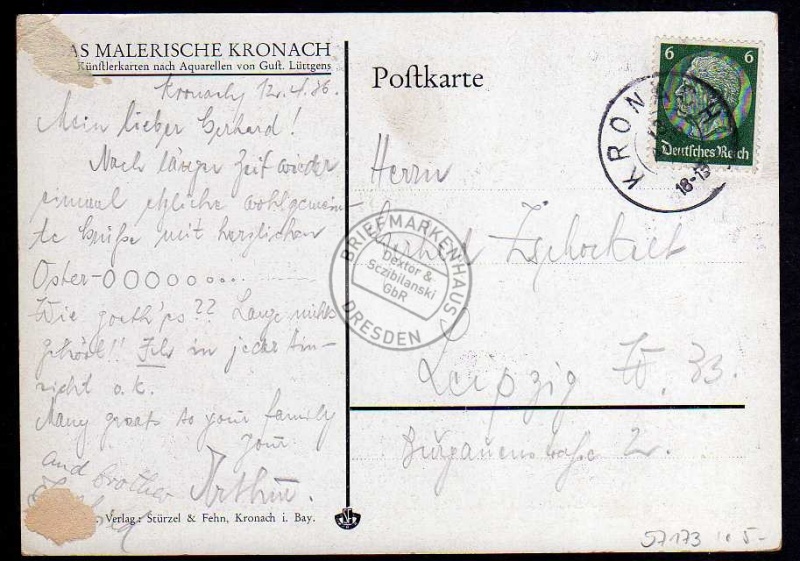 AS MALERISCHE KRONACH
Künstlerkarten nach Aquarellen von Gust. Lüttgens
Kronach, 12.4.36.
Mein lieber Gerhard!
Nach langer Zeit wieder
einmal etliche wohlgemein-
te Grüße mit herzlichen
Oster-OOOOooo...
Wie goeth'ps?? Lange nichts
gehört!! Ich in jeder Hin-
sicht o.k.
Many greats to your family
Your
and brother Arthur.
Verlag: Stürzel & Fehn, Kronach i. Bay.
Postkarte
6 6
Deutsches Reich
KRONACH
18-19
Herrn
Gerhard
Leipzig W. 33.
2.
BRIEFMARKENHAUS
Dextor &
Sczibilanski
GbR
DRESDEN
57173 5-